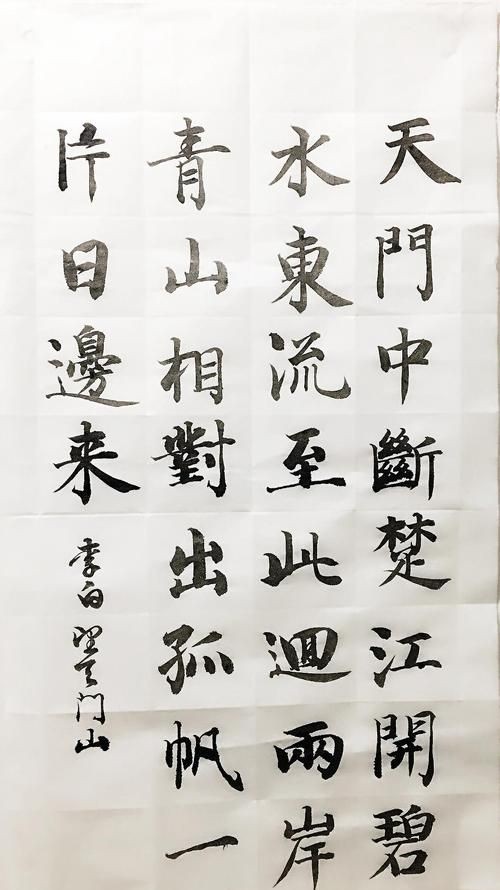 天門中斷楚江開碧
水東流至此迴兩岸
青山相對出孤帆一
片日邊来
李白望天门山